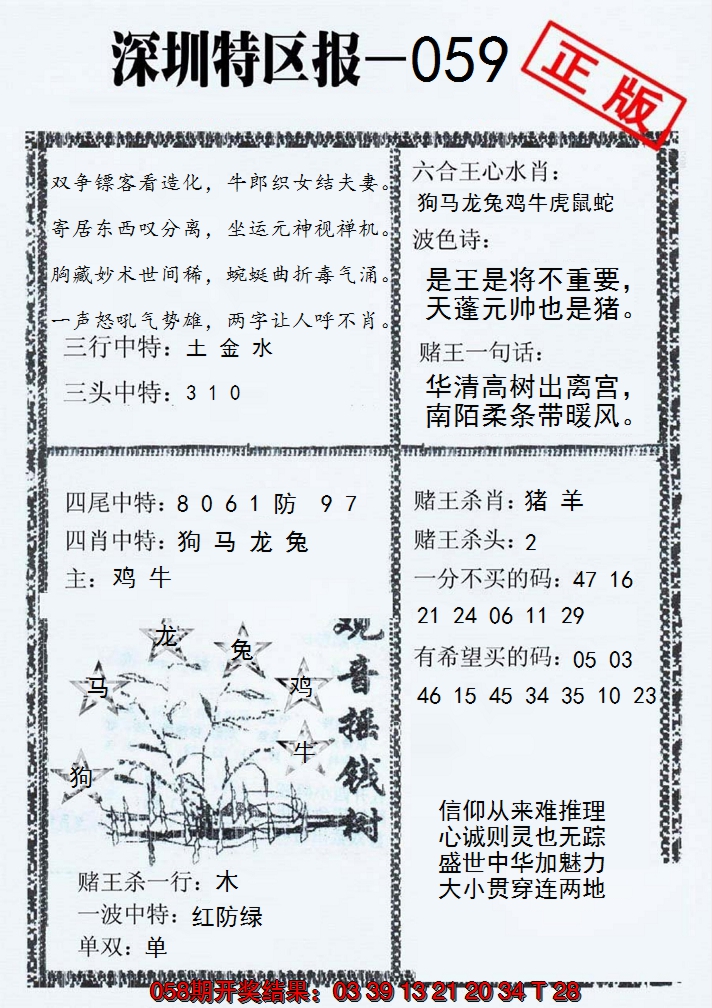 深圳特区报—059
正版
双争镖客看造化，牛郎织女结夫妻。
寄居东西叹分离，坐运元神视禅机。
胸藏妙术世间稀，蜿蜒曲折毒气涌。
一声怒吼气势雄，两字让人呼不肖。
三行中特：土 金 水
三头中特：3 1 0
六合王心水肖：
狗马龙兔鸡牛虎鼠蛇
波色诗：
是王是将不重要，
天蓬元帅也是猪。
赌王一句话：
华清高树出离宫，
南陌柔条带暖风。
四尾中特：8 0 6 1 防 9 7
四肖中特：狗 马 龙 兔
主：鸡 牛
龙
兔
马
鸡
牛
狗
观音摇钱树
赌王杀一行：木
一波中特：红防绿
单双：单
赌王杀肖：猪 羊
赌王杀头：2
一分不买的码：47 16
21 24 06 11 29
有希望买的码：05 03
46 15 45 34 35 10 23
信仰从来难推理
心诚则灵也无踪
盛世中华加魅力
大小贯穿连两地
058期开奖结果：03 39 13 21 20 34 T 28